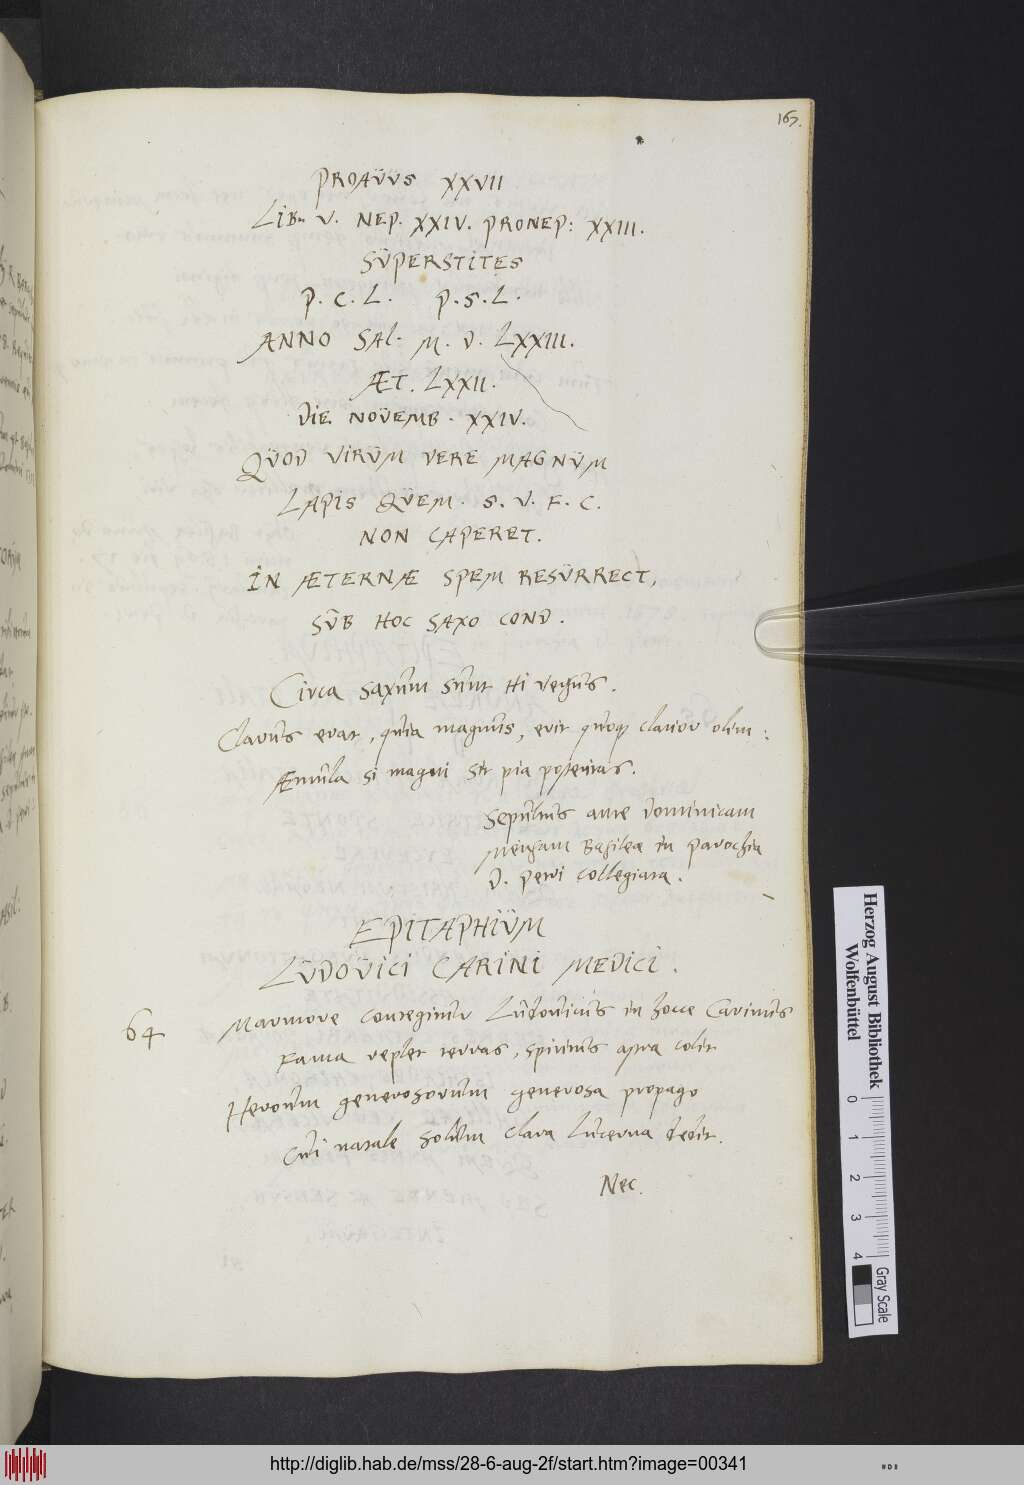 167.
PROAVVS XXVII
LIB. V. NEP. XXIV. PRONEP: XXIII.
SŬPERSTITES
P. C. L. P. S. L.
ANNO SAL. M. D. LXXIII.
ÆT. LXXII.
DIE. NOŬEMB. XXIV.
QŬOD VIRŬM VERE MAGNŬM
LAPIS QŬEM. S. V. F. C.
NON CAPERET.
IN ÆTERNÆ SPEM RESŬRRECT,
SŬB HOC SAXO COND.
Circa saxum sunt Hi versus.
Clarus erat, quia magnus, erit quoq clarior olim:
Æmula si magni sit pia posteritas.
Sepultus ante Dominicam
mensam Basilea in parochia
D. petri collegiata.
EPITAPHIŬM
LŬDOŬICI CARINI MEDICI.
64
Marmore contegitur Ludouicus in hocce Carinus
Fama replet terras, spiritus astra colit
Heroum generosorum generosa propago
Cui natale solum clara Lucerna dedit.
Nec.
Herzog August Bibliothek
Wolfenbüttel
0 1 2 3 4
Gray Scale
http://diglib.hab.de/mss/28-6-aug-2f/start.htm?image=00341